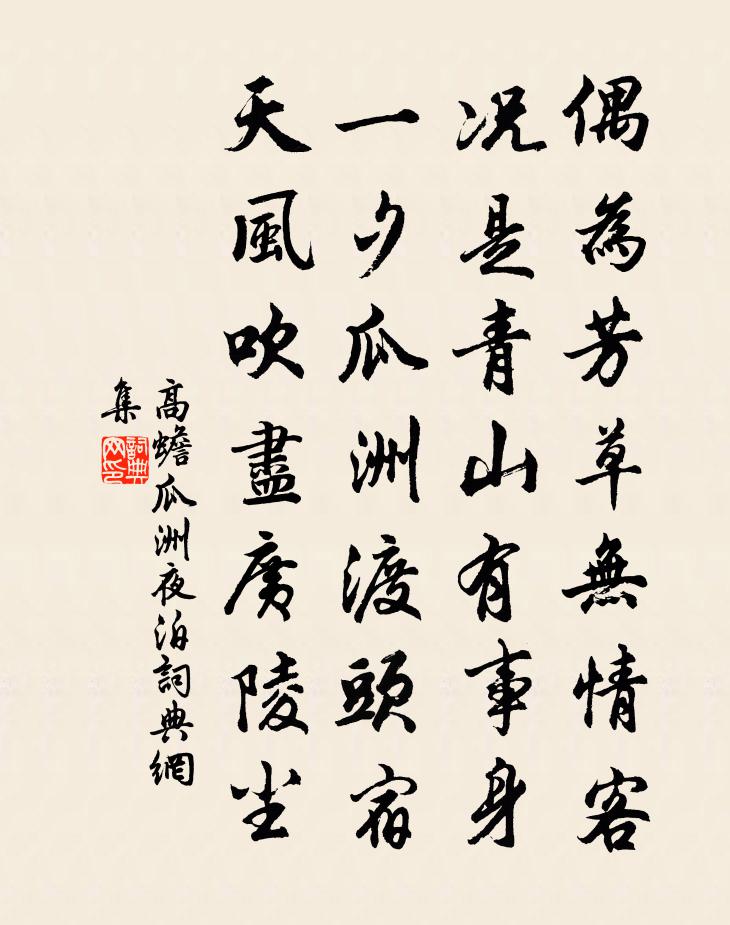 偶為芳草無情客
况是青山有事身
一夕瓜洲渡頭宿
天風吹盡廣陵尘
高蟾瓜洲夜泊詞典網
集
詞典
网印